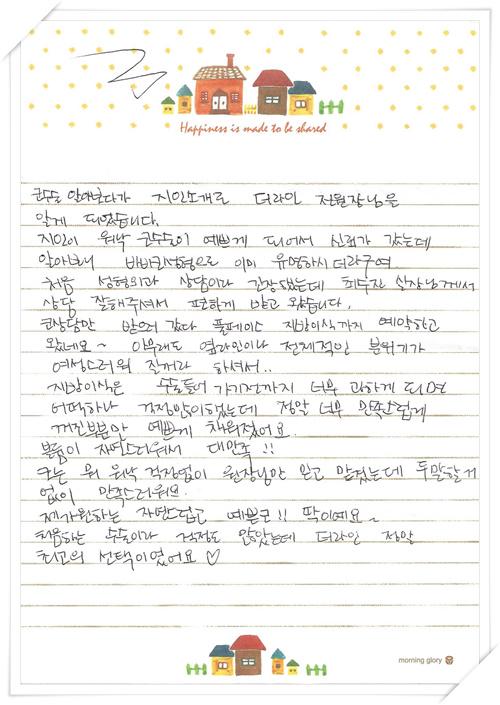 Happiness is made to be shared
코수술 알아보다가 지인소개로 더라인 정원장님을
알게 되었습니다.
지인이 워낙 코수술이 예쁘게 되어서 신뢰가 갔는데
알아보니 바비코성형으로 이미 유명하시더라구여
처음 성형외과 상담이라 긴장했는데 최두자 실장님께서
상담 잘해주셔서 편하게 받고 왔습니다.
코상담만 받으러 갔다 풀페이스 지방이식까지 예약하고
왔네요~ 아무래도 옆라인이나 전체적인 분위기가
여성스러워 질꺼라 하셔서..
지방이식은 수술들어가기전까지 너무 과하게 되면
어떡하나 걱정많이했는데 정말 너무 만족스럽게
꺼진부분만 예쁘게 채워졌어요.
볼륨이 자연스러워서 대만족!!
코는 뭐 워낙 걱정없이 원장님만 믿고 맡겼는데 두말할거
없이 만족스러워요.
제가원하는 자연스럽고 예쁜코!! 딱이예요~
처음하는 수술이라 걱정도 많았는데 더라인 정말
최고의 선택이였어요♡
morning glory